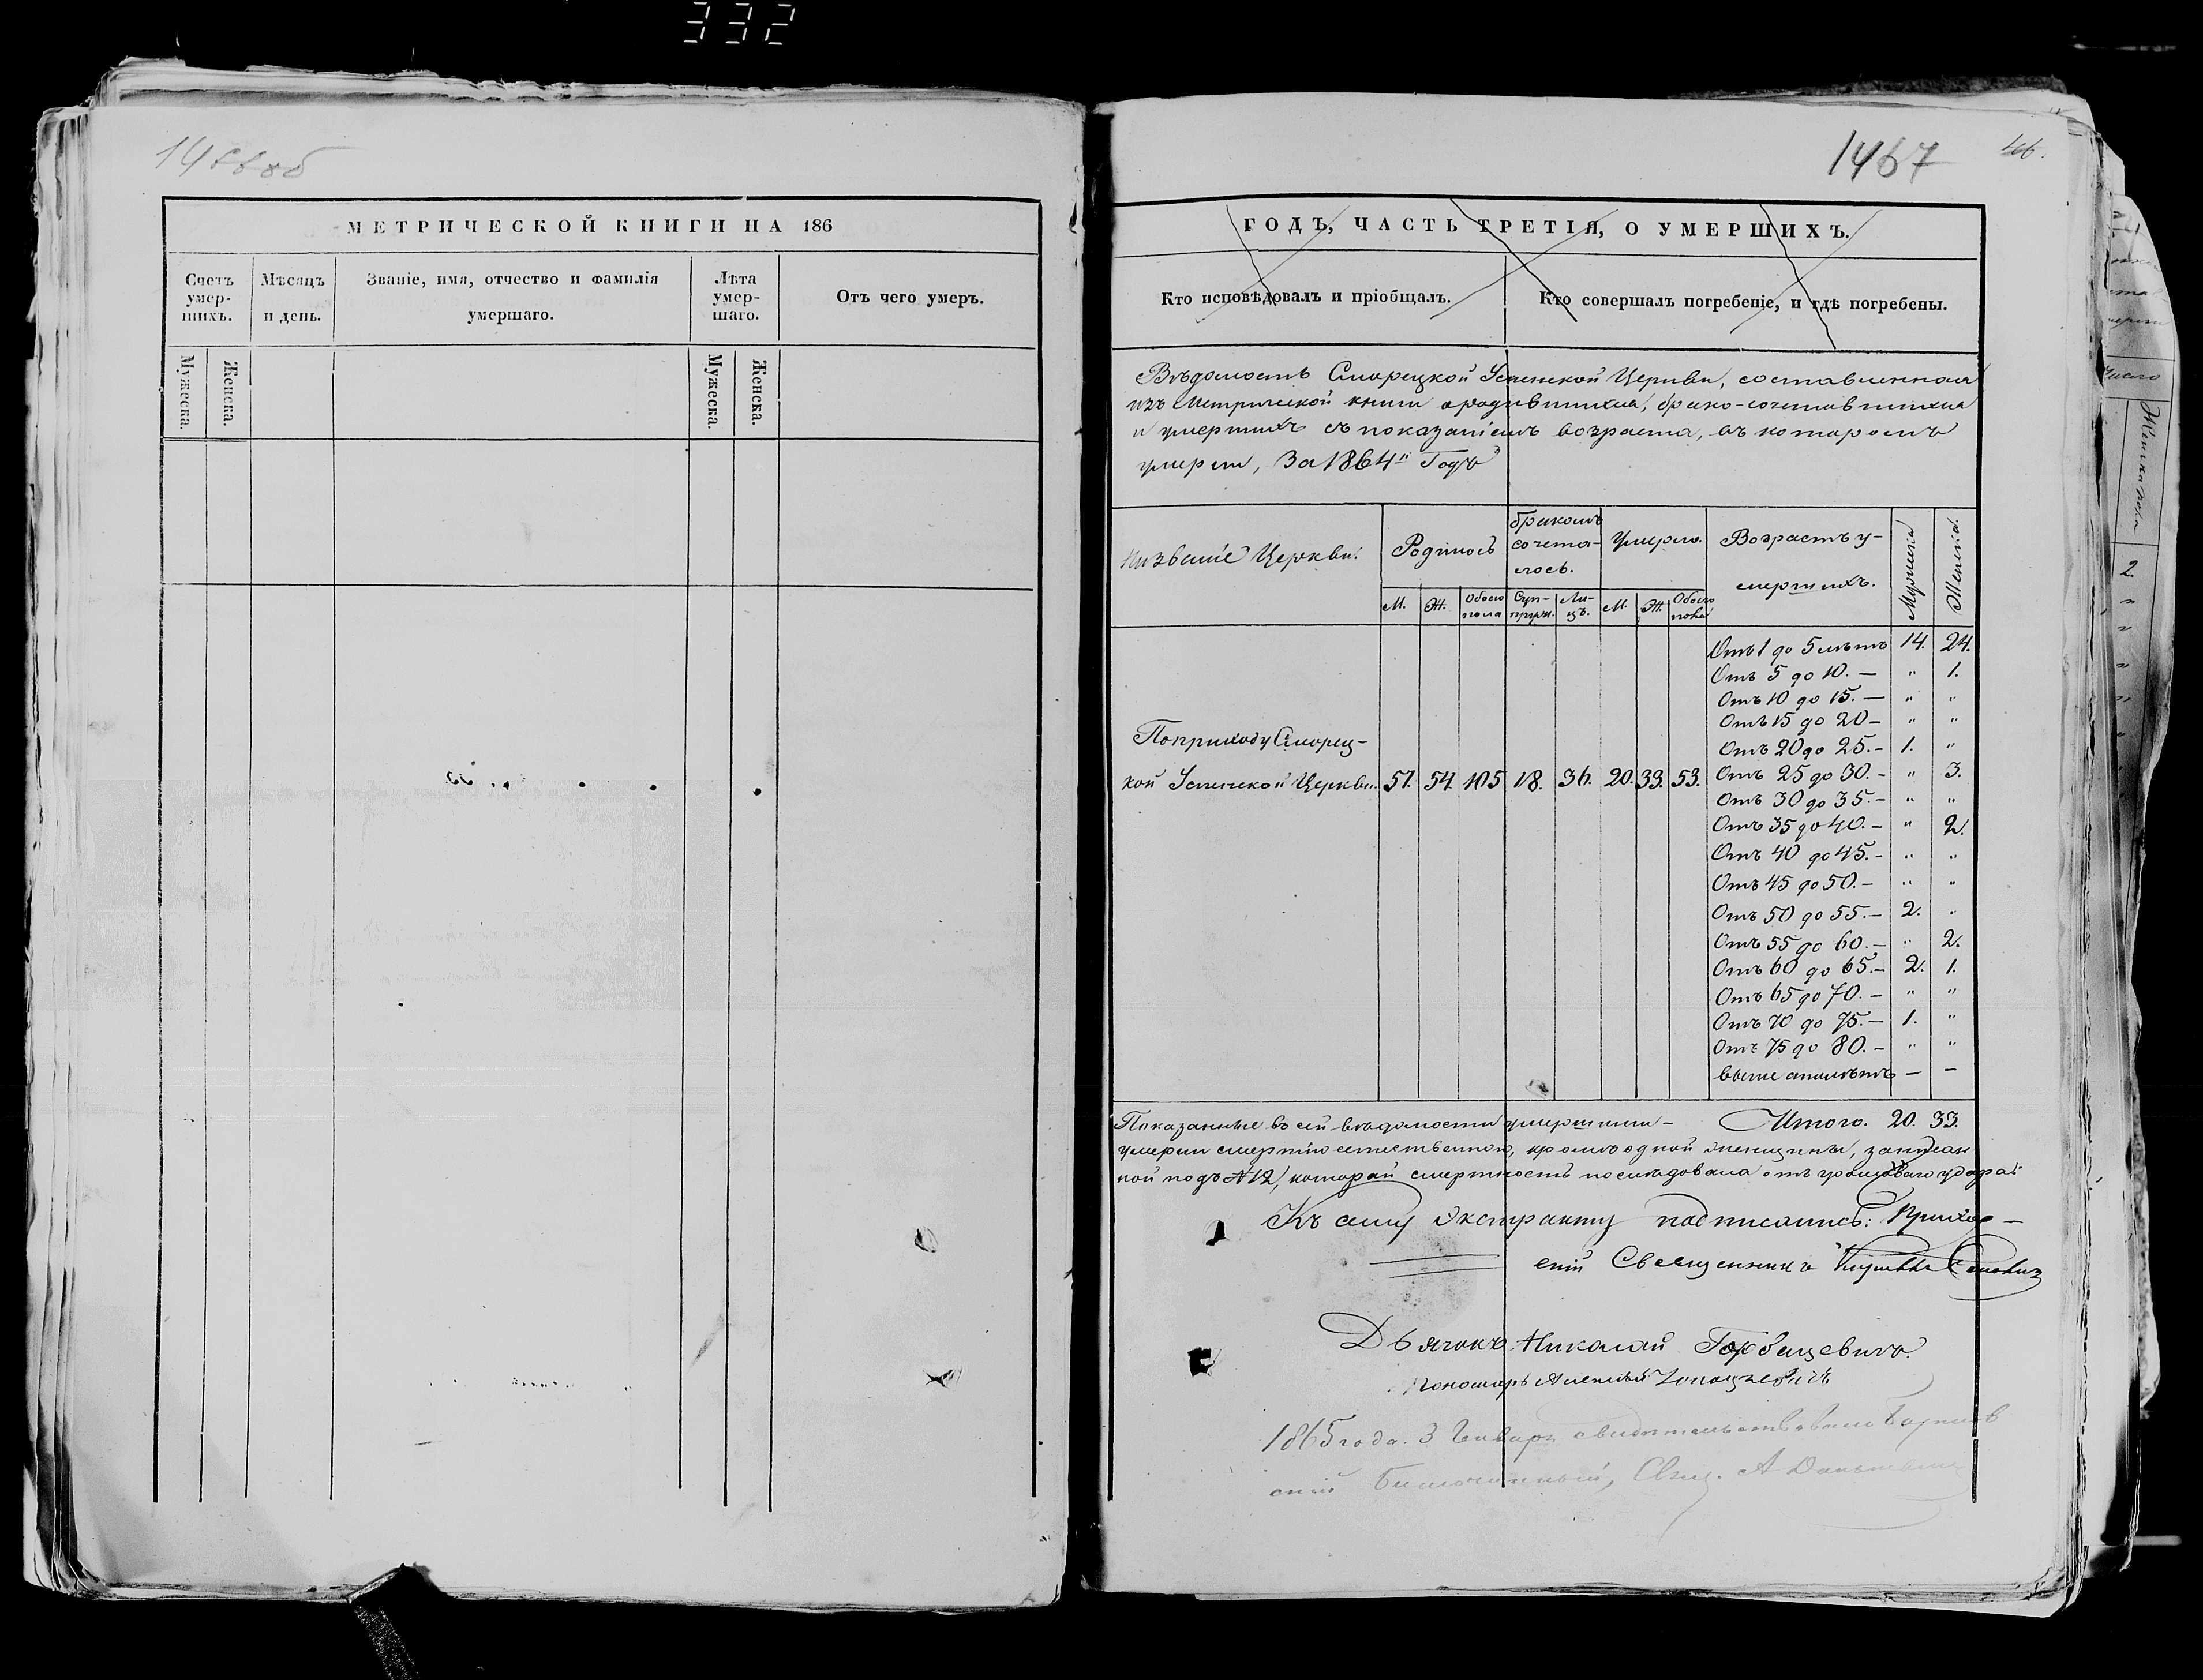 332
1466 об
МЕТРИЧЕСКОЙ КНИГИ НА 186
Счетъ умер-шихъ.
Мѣсяцъ и день.
Званіе, имя, отчество и фамилія умершаго.
Лѣта умер-шаго.
Отъ чего умеръ.
Мужеска.
Женска.
Мужеска.
Женска.
1467
46.
ГОДЪ, ЧАСТЬ ТРЕТІЯ, О УМЕРШИХЪ.
Кто исповѣдовалъ и пріобщалъ.
Кто совершалъ погребеніе, и гдѣ погребены.
Вѣдомость Сморецкой Успенской Церкви, составленная
изъ Метрической книги о родившихся, брако-сочетавшихся
и умершихъ съ показаніемъ возраста, въ которомъ
умерли, За 1864й Годъ
Названіе Церкви.
Родилось
бракомъ сочета-лось.
Умерло.
Возрастъ у-мершихъ.
Мужеска
Женска.
М. Ж. Обоего пола Суп-пруж. Ли-цъ. М. Ж. Обоего пола
Отъ 1 до 5 лѣтъ 14. 24.
Отъ 5 до 10. — " 1.
Отъ 10 до 15. — " "
Отъ 15 до 20 — " "
Отъ 20 до 25. — 1. "
По приходу Сморец-
кой Успенской Церкви. 51. 54. 105 18. 36. 20. 33. 53.
Отъ 25 до 30. — " 3.
Отъ 30 до 35. — " "
Отъ 35 до 40. — " 2.
Отъ 40 до 45. — " "
Отъ 45 до 50. — " "
Отъ 50 до 55. — 2. "
Отъ 55 до 60. — " 2.
Отъ 60 до 65. — 2. 1.
Отъ 65 до 70. — " "
Отъ 70 до 75. — 1. "
Отъ 75 до 80. — " "
выше — —
Показанные въ сей вѣдомости умершими — Итого. 20. 33.
умерли смертію естественною, кромѣ одной женщины, записан
ной подъ № 12, которой смертность послѣдовала отъ громоваго удара
Къ сему Экстракту подписались: Приход-
скій Священникъ
Дьячокъ Николай Горбацевичъ.
Пономарь Алексѣй
1865 года. 3 Генваря свидѣтельствовалъ
скій Благочинный, Свящ. А